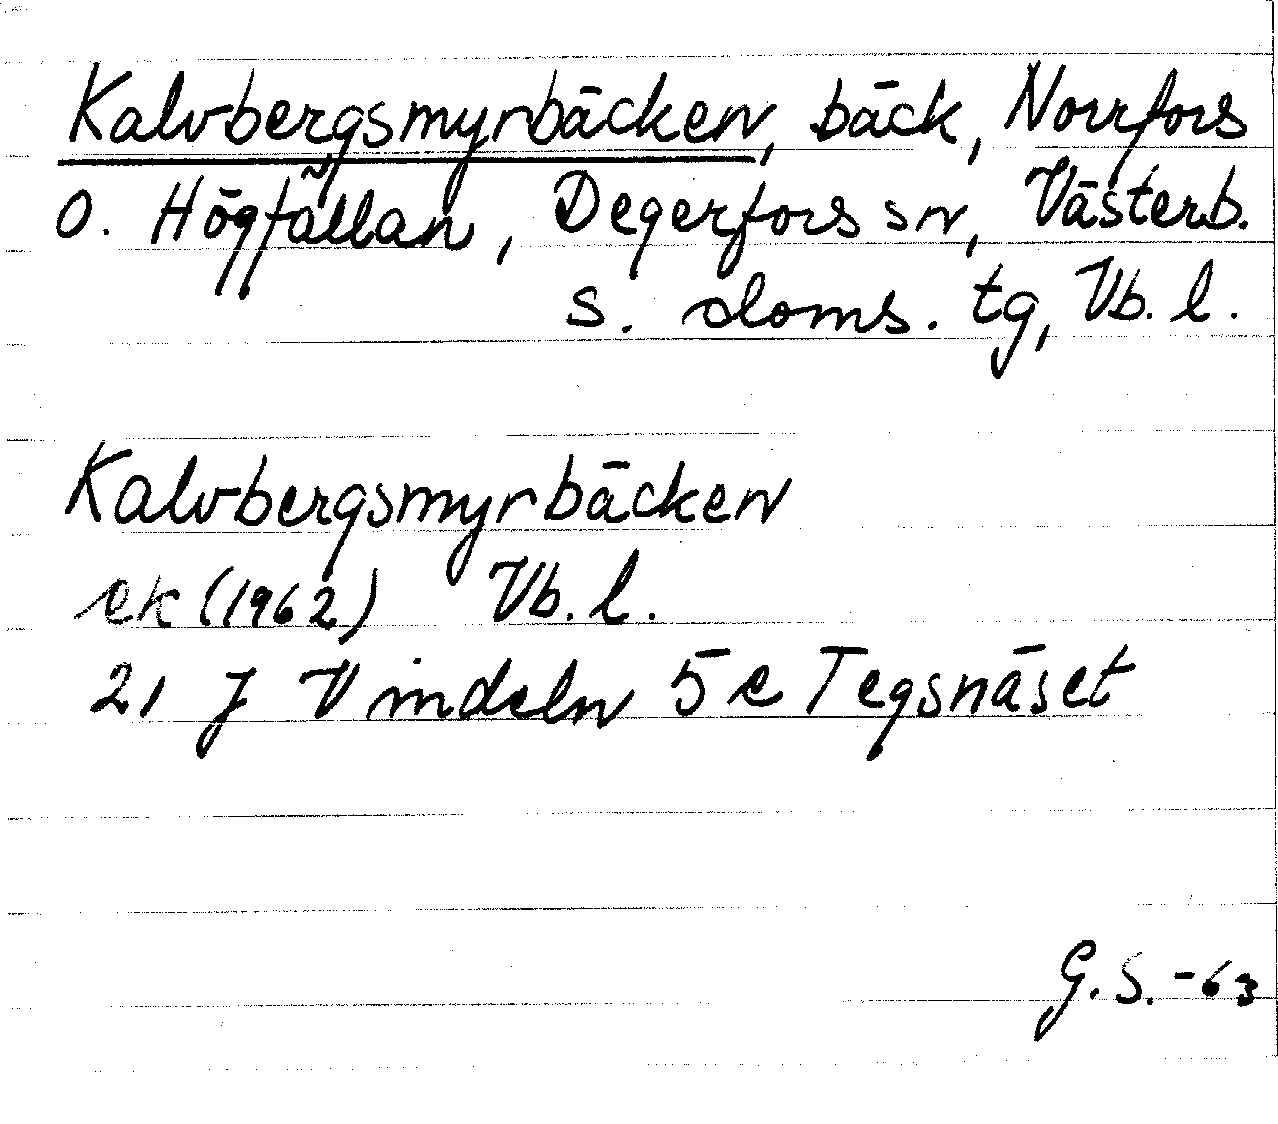 Kalvbergsmyrbäcken, bäck, Norrfors
o. Högfällan, Degerfors sn, Västerb.
s. doms. tg, Vb. l.
Kalvbergsmyrbäcken
ek (1962) Vb. l.
21 J Vindeln 5 e Tegsnäset
G.S. -63